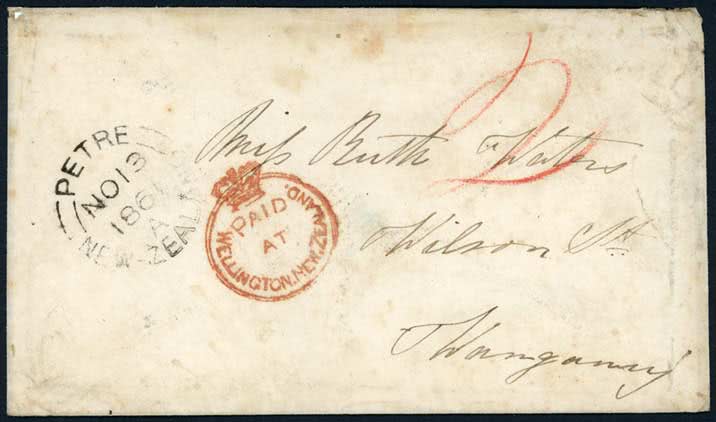 PETRE
NO 13
186
A
NEW-ZEALAND
PAID
AT
WELLINGTON. NEW. ZEALAND.
2
Miss Ruth Waters
Wilson St
Wanganui